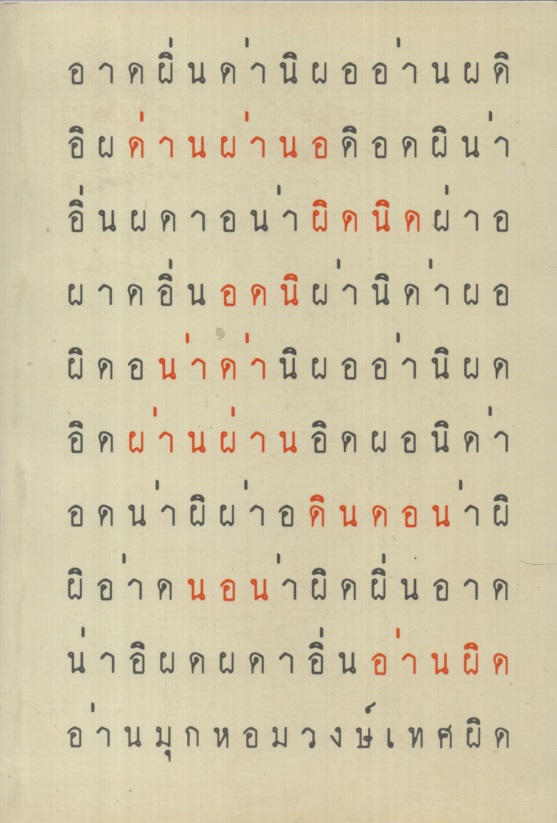 อาดผิ่นด่านิผออ่านผดิ
อิผด่านผ่านอดิอดผิน่า
อิ่นผดาอน่าผิดนิดผ่าอ
ผาดอิ่นอดนิผ่านิด่าผอ
ผิดอน่าด่านิผออ่านิผด
อิดผ่านผ่านอิดผอนิด่า
อดน่าผิผ่าอดินดอน่าผิ
ผิอ่าดนอน่าผิดผิ่นอาด
น่าอิผดผดาอิ่นอ่านผิด
อ่านมุกหอมวงษ์เทศผิด